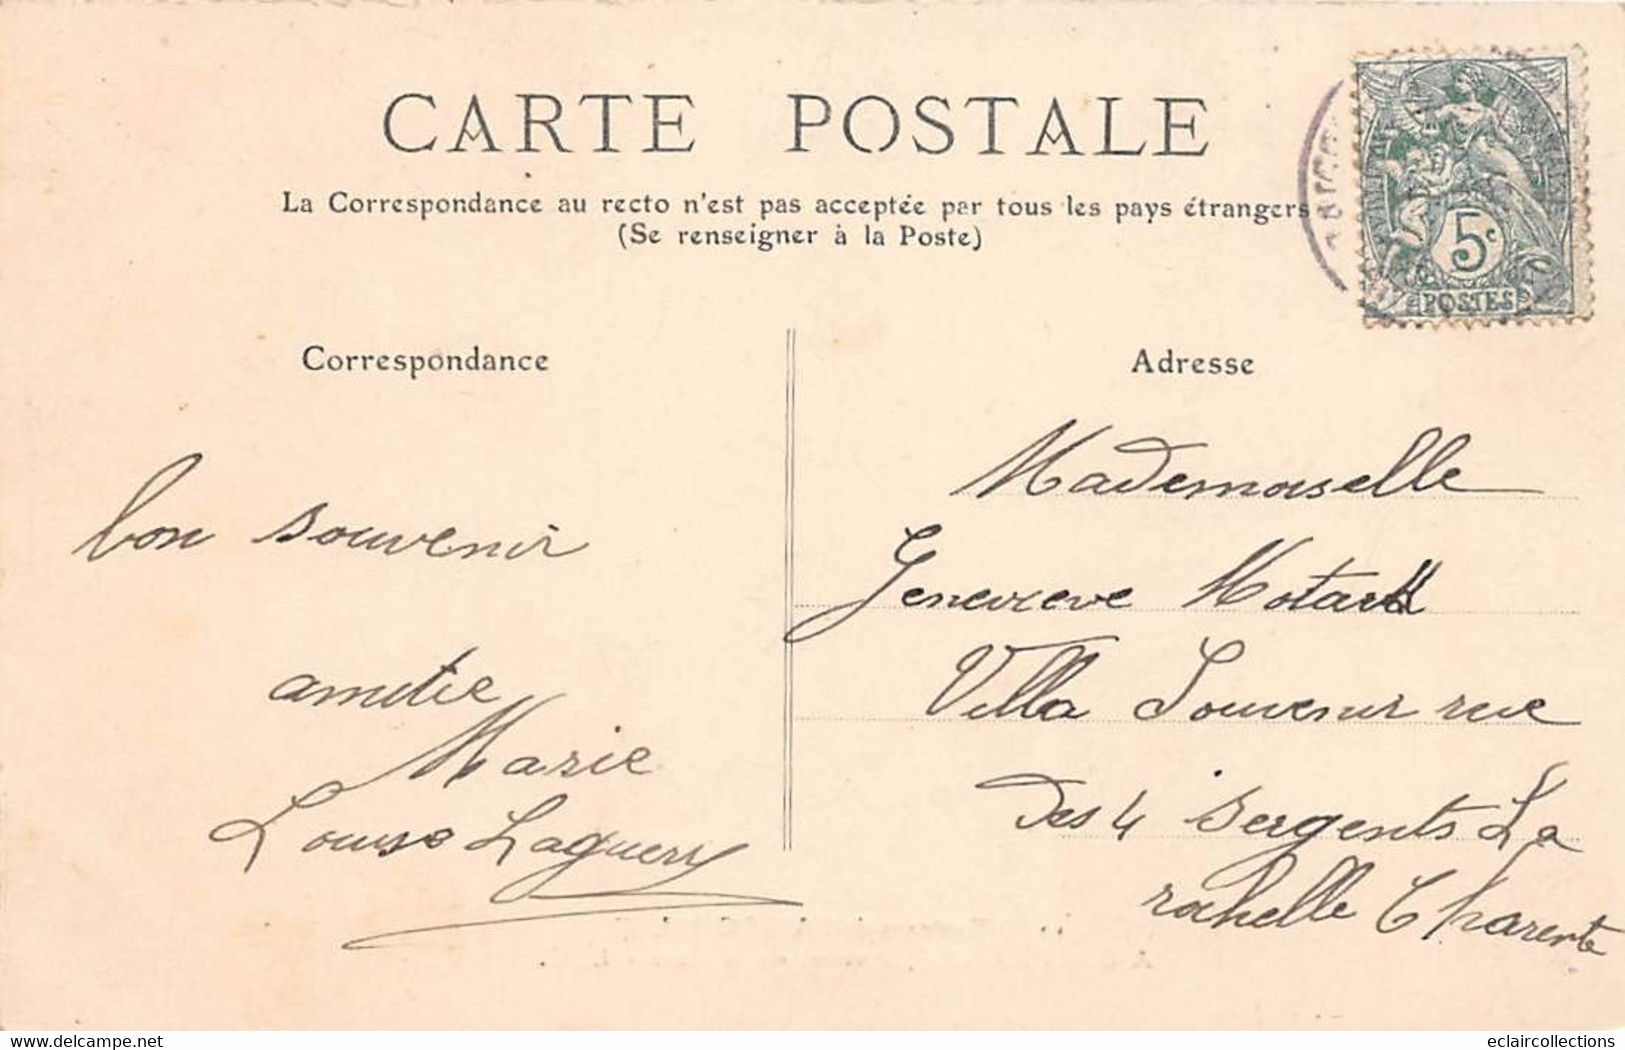 CARTE POSTALE
La Correspondance au recto n'est pas acceptée par tous les pays étrangers
(Se renseigner à la Poste)
5c
POSTES
Correspondance
bon souvenir
amitie
Marie
Louise Laguerry
Adresse
Mademoiselle
Genevieve Motard
Villa Souvenir rue
Des 4 Sergents La
rochelle Charente
delcampe.net
eclaircollections